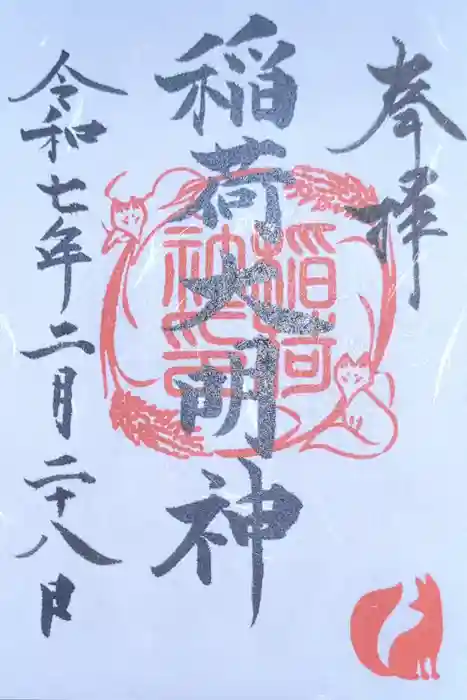 奉拝
稲荷大明神
稲荷
神社印
令和七年二月二十八日